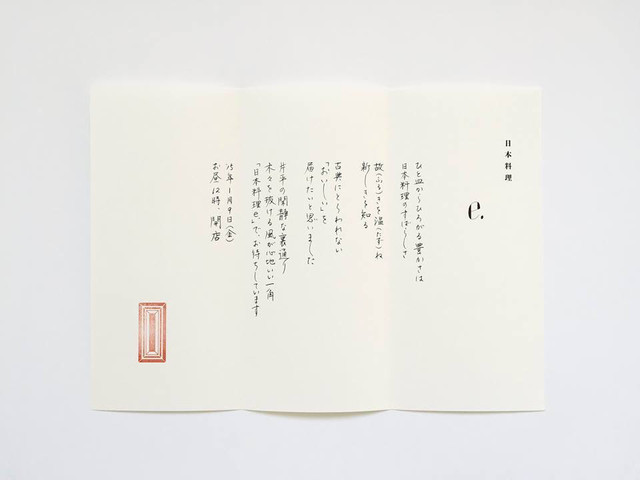 日本料理
e.
ひと皿からひろがる豊かさは
日本料理のすばらしさ
故(ふる)きを温(たず)ね
新しきを知る
古典にとらわれない
「おいしい」を
届けたいと思いました
片平の閑静な裏通り
木々を抜ける風が心地いい一角
「日本料理e」で、お待ちしています
15年1月9日(金)
お昼12時、開店